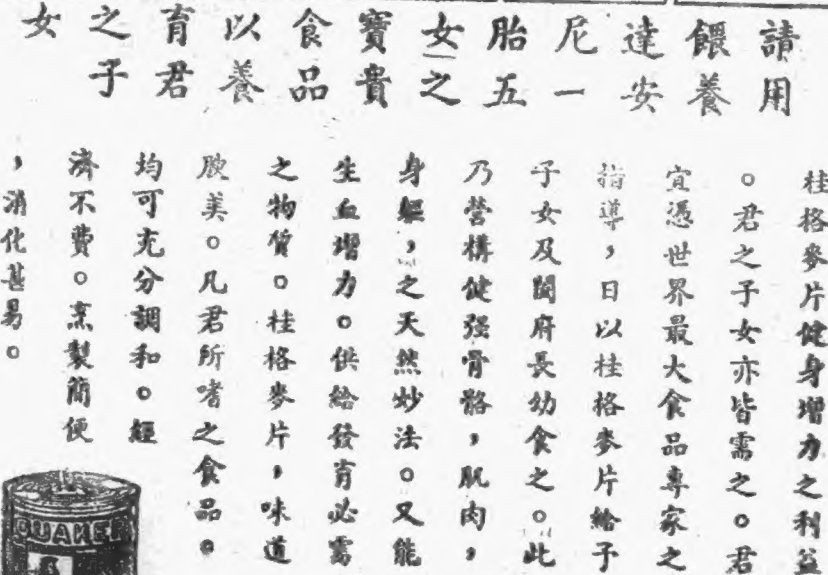 請用
餵養
達安
尼一
胎五
女之
寶貴
食品
以養
育君
之子
女
桂格麥片健身增力之利益
。君之子女亦皆需之。君
宜憑世界最大食品專家之
指導，日以桂格麥片給子
子女及閤府長幼食之。此
乃營構健强骨骼，肌肉，
身軀，之天然妙法。又能
生血增力。供給發育必需
之物質。桂格麥片，味道
腴美。凡君所嗜之食品。
均可充分調和。經
濟不費。烹製簡便
，消化甚易。
QUAKER